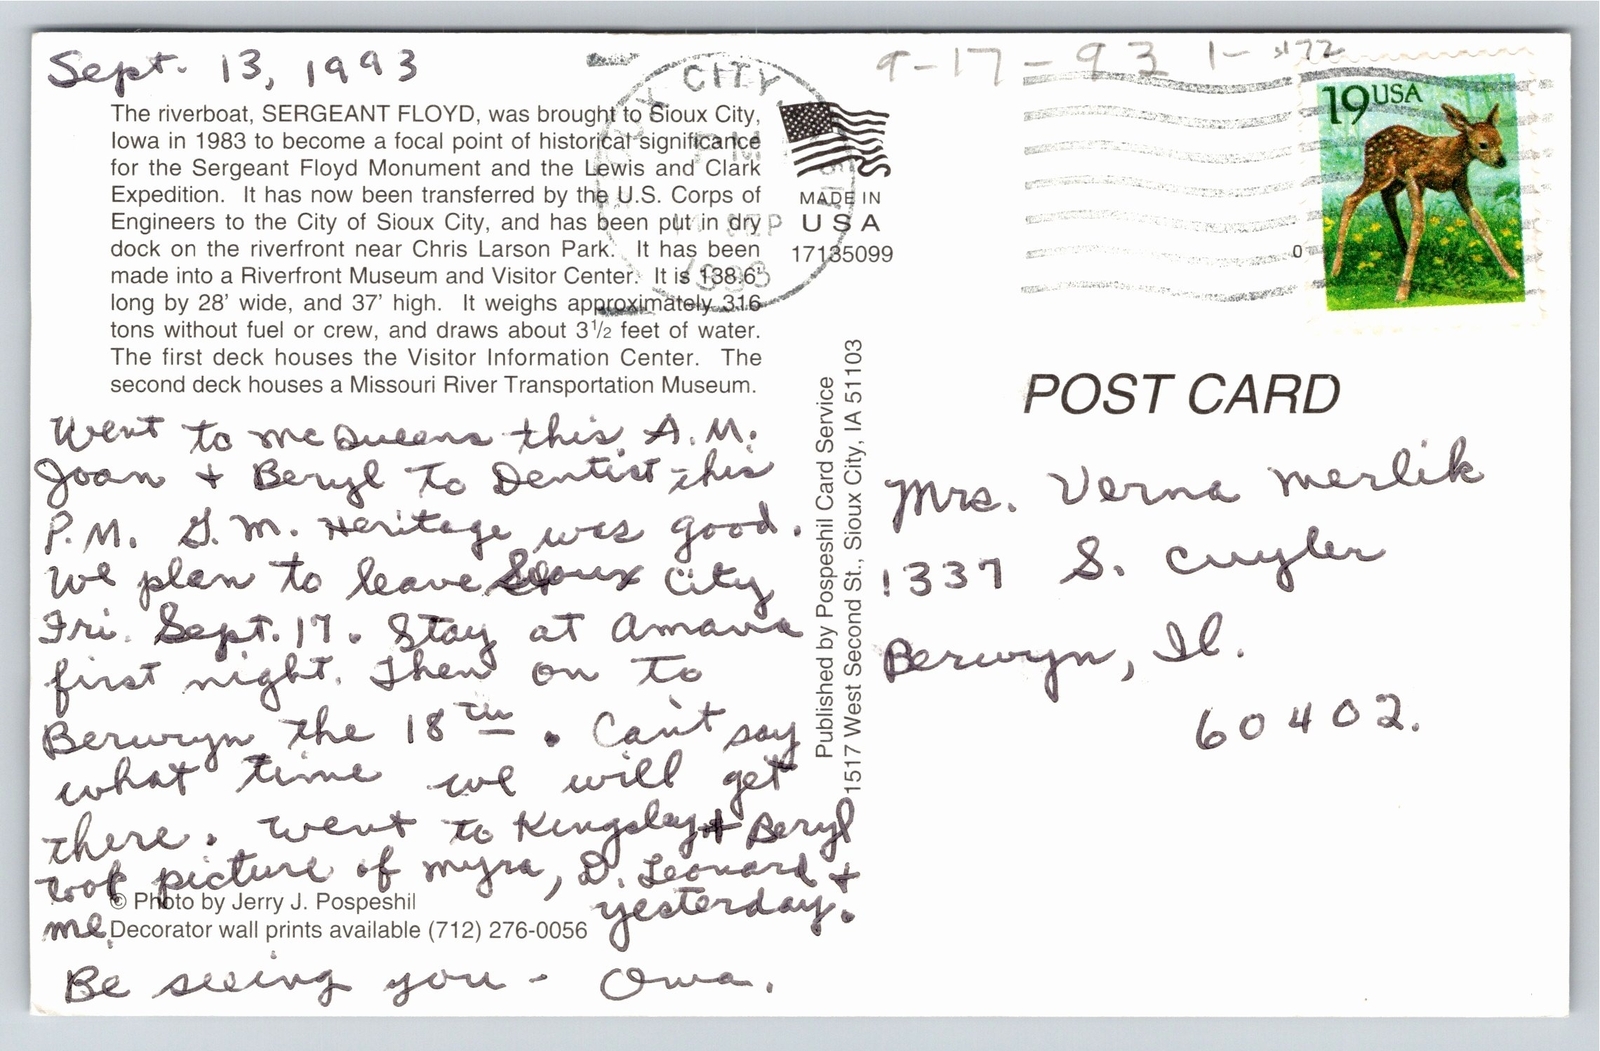 Sept. 13, 1993
The riverboat, SERGEANT FLOYD, was brought to Sioux City,
Iowa in 1983 to become a focal point of historical significance
for the Sergeant Floyd Monument and the Lewis and Clark
Expedition. It has now been transferred by the U.S. Corps of
Engineers to the City of Sioux City, and has been put in dry
dock on the riverfront near Chris Larson Park. It has been
made into a Riverfront Museum and Visitor Center. It is 138.6'
long by 28' wide, and 37' high. It weighs approximately 316
tons without fuel or crew, and draws about 3 1/2 feet of water.
The first deck houses the Visitor Information Center. The
second deck houses a Missouri River Transportation Museum.
Went to McQueens this A.M.
Joan + Beryl to Dentist this
P.M. G.M. Heritage was good.
We plan to leave Sioux City
Fri. Sept. 17. Stay at Amana
first night. Then on to
Berwyn the 18th. Can't say
what time we will get
there. Went to Kingsley + Beryl
took picture of Myra, D. Leonard +
me yesterday.
© Photo by Jerry J. Pospeshil
Decorator wall prints available (712) 276-0056
Be seeing you - Owa.
CITY
PM
SEP
1993
MADE IN
USA
17135099
Published by Pospeshil Card Service
1517 West Second St., Sioux City, IA 51103
9-17-93 1-
19 USA
POST CARD
Mrs. Verna Merlik
1337 S. Cuyler
Berwyn, Il.
60402.